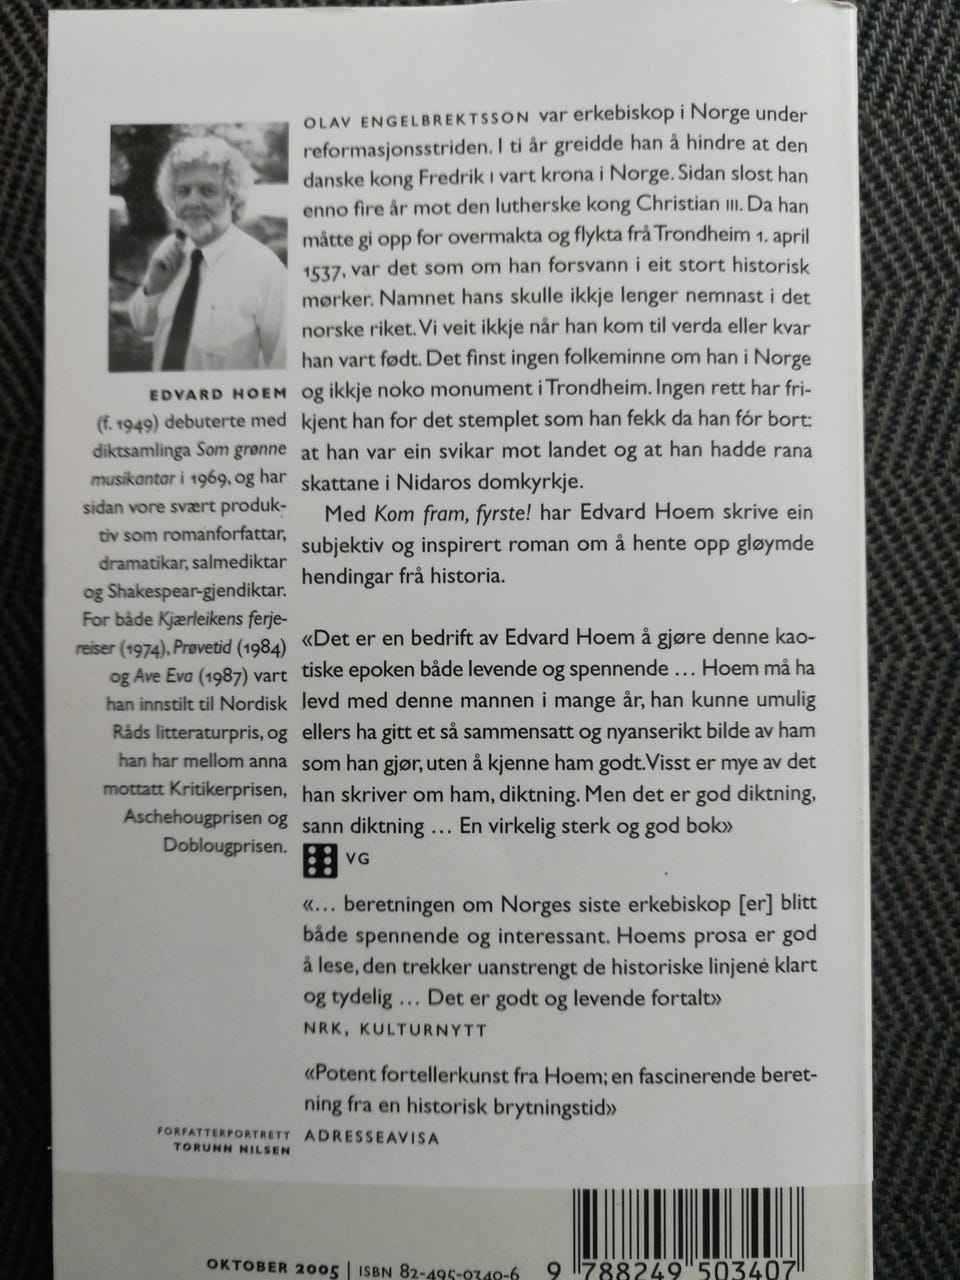 OLAV ENGELBREKTSSON var erkebiskop i Norge under
reformasjonsstriden. I ti år greidde han å hindre at den
danske kong Fredrik I vart krona i Norge. Sidan slost han
enno fire år mot den lutherske kong Christian III. Da han
måtte gi opp for overmakta og flykta frå Trondheim 1. april
1537, var det som om han forsvann i eit stort historisk
mørker. Namnet hans skulle ikkje lenger nemnast i det
norske riket. Vi veit ikkje når han kom til verda eller kvar
han vart født. Det finst ingen folkeminne om han i Norge
og ikkje noko monument i Trondheim. Ingen rett har fri-
kjent han for det stemplet som han fekk da han fór bort:
at han var ein svikar mot landet og at han hadde rana
skattane i Nidaros domkyrkje.
Med Kom fram, fyrste! har Edvard Hoem skrive ein
subjektiv og inspirert roman om å hente opp gløymde
hendingar frå historia.
«Det er en bedrift av Edvard Hoem å gjøre denne kao-
tiske epoken både levende og spennende ... Hoem må ha
levd med denne mannen i mange år, han kunne umulig
ellers ha gitt et så sammensatt og nyanserikt bilde av ham
som han gjør, uten å kjenne ham godt. Visst er mye av det
han skriver om ham, diktning. Men det er god diktning,
sann diktning ... En virkelig sterk og god bok»
VG
«... beretningen om Norges siste erkebiskop [er] blitt
både spennende og interessant. Hoems prosa er god
å lese, den trekker uanstrengt de historiske linjene klart
og tydelig ... Det er godt og levende fortalt»
NRK, KULTURNYTT
«Potent fortellerkunst fra Hoem; en fascinerende beret-
ning fra en historisk brytningstid»
ADRESSEAVISA
EDVARD HOEM
(f. 1949) debuterte med
diktsamlinga Som grønne
musikantar i 1969, og har
sidan vore svært produk-
tiv som romanforfattar,
dramatikar, salmediktar
og Shakespear-gjendiktar.
For både Kjærleikens ferje-
reiser (1974), Prøvetid (1984)
og Ave Eva (1987) vart
han innstilt til Nordisk
Råds litteraturpris, og
han har mellom anna
mottatt Kritikerprisen,
Aschehougprisen og
Doblougprisen.
FORFATTERPORTRETT
TORUNN NILSEN
OKTOBER 2005 | ISBN 82-495-0340-6
9 788249 503407